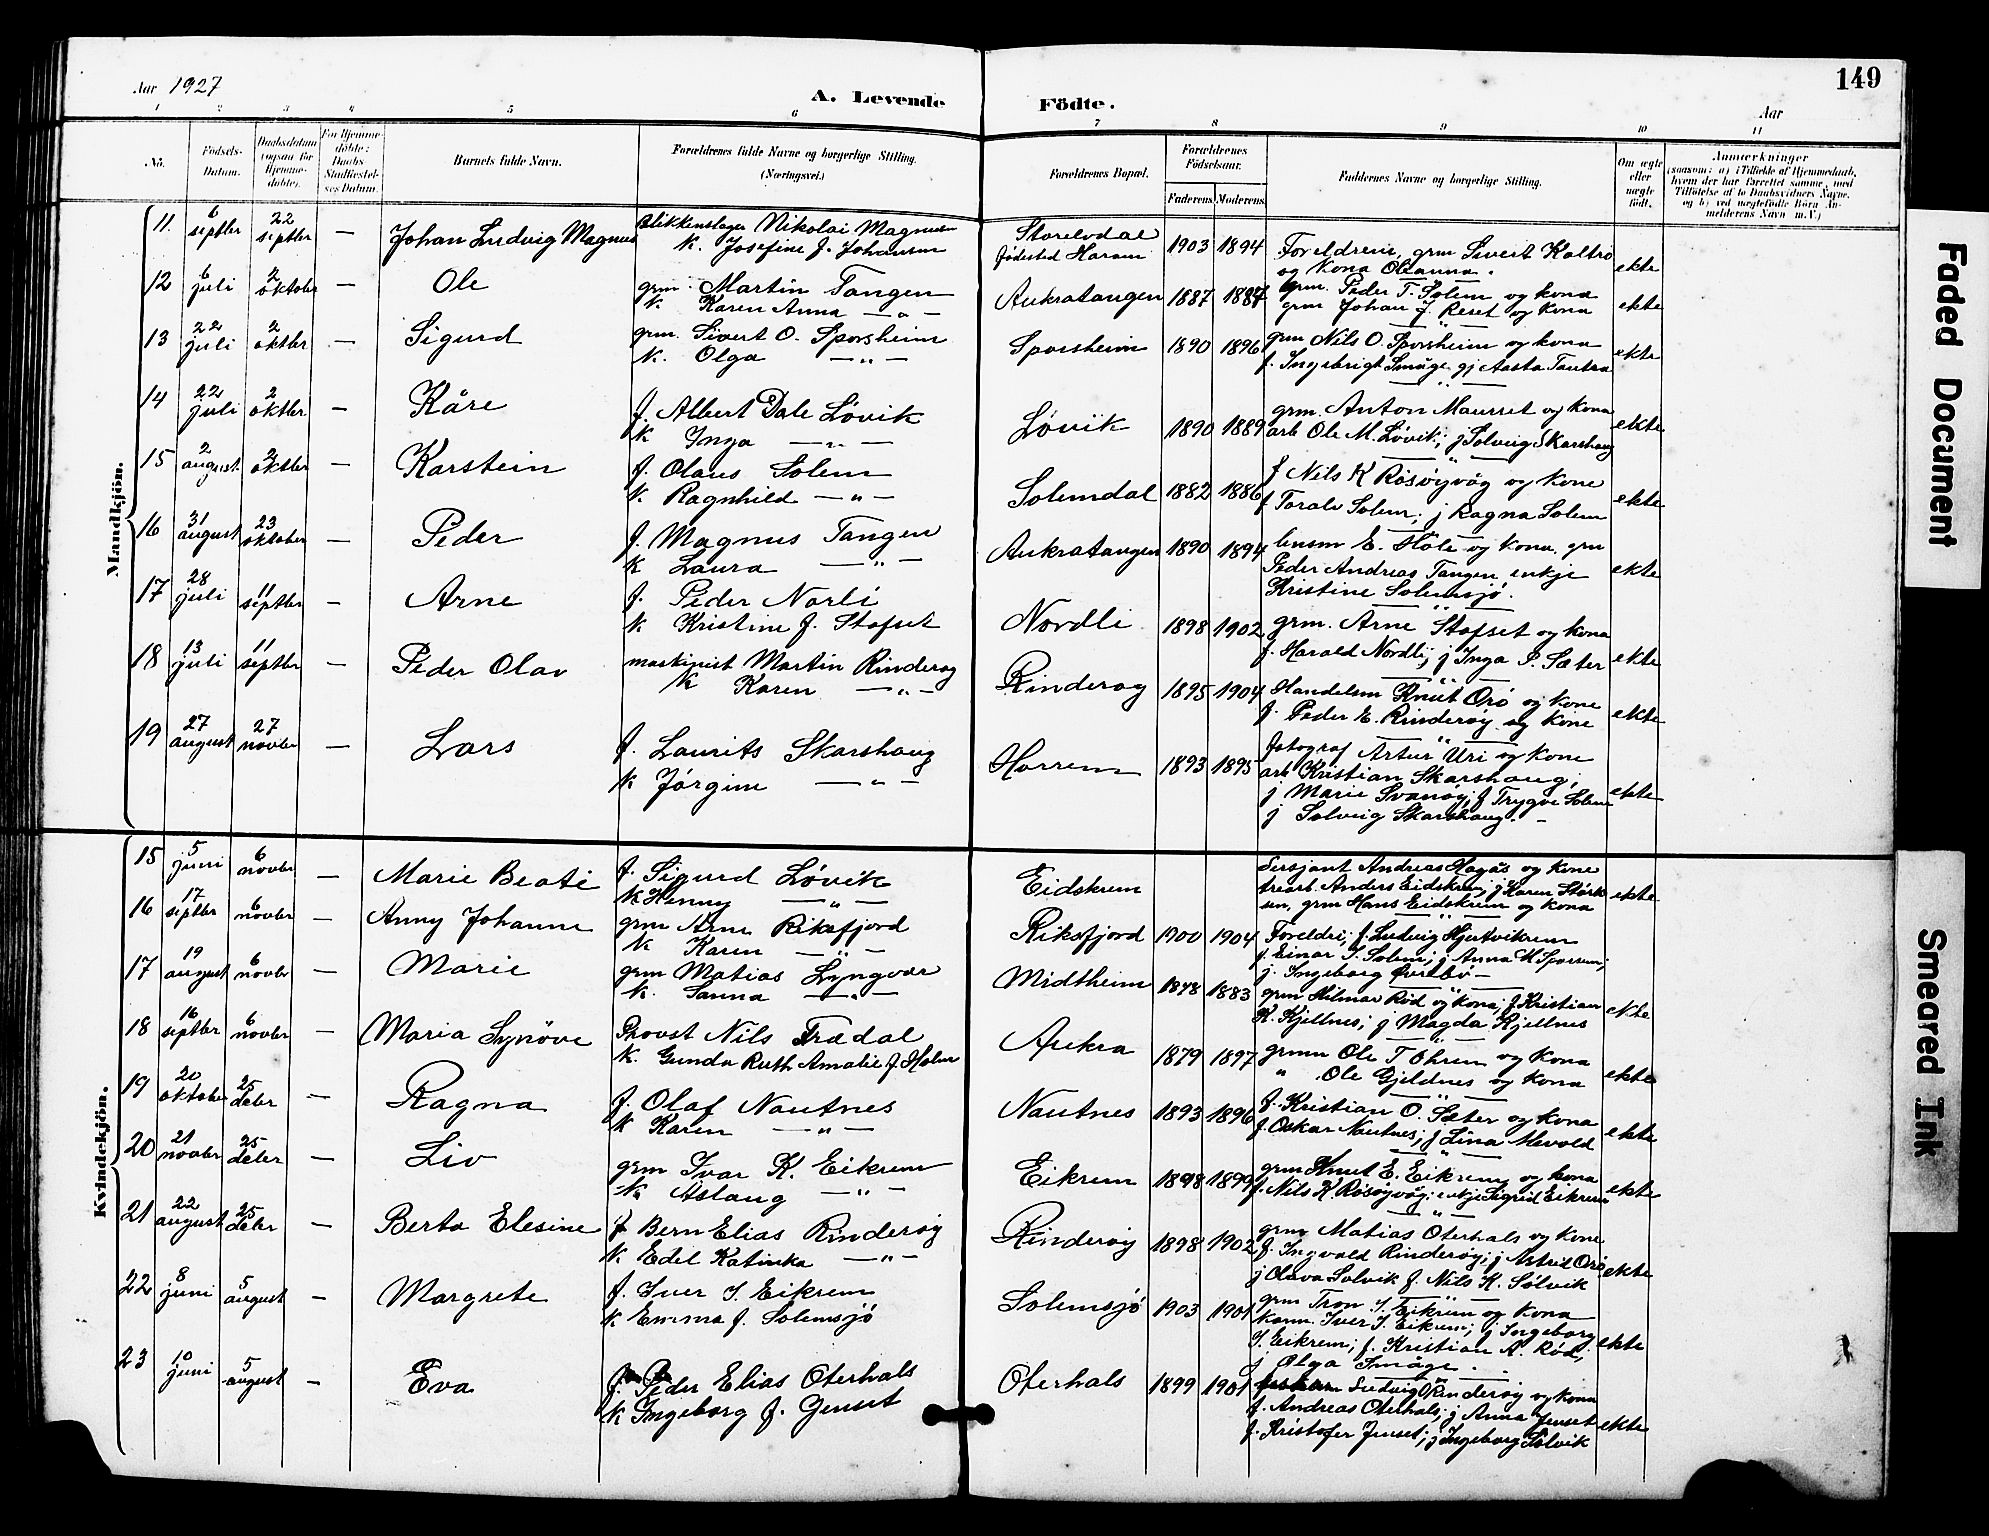 Aar 1927
A. Levende Födte.
Aar
149
1 2 3 4 5 6 7 8 9 10 11
No.
Födsels-Datum.
Daabsdatum (ogsaa for Hjemme-döbte).
For Hjemme-döbte: Daabs-Stadfæstel-ses Datum.
Barnets fulde Navn.
Forældrenes fulde Navne og borgerlige Stilling. (Næringsvei.)
Forældrenes Bopæl.
Forældrenes Födselsaar.
Faderens Moderens
Faddernes Navne og borgerlige Stilling.
Om ægte eller uægte födt.
Anmærkninger
(saasom: a) i Tilfælde af Hjemmedaab, hvem der har forrettet samme, med Tilföielse af to Daabsvidners Navne, og b) ved uægtefödte Börn An-melderens Navn m.V.)
Mandkjön.
11. 6 septbr 22 septbr — Johan Ludvig Magnus
blikkenslager Nikolai Magnusen
K. Josefine f. Johansen
Storelvdal
fødested Haram
1903 1894
Foreldrene, grm Sivert Kaltro
og kona Oleanna.
ekte
12 6 juli 2 oktober — Ole
grm. Martin Tangen
K. Karen Anna — " —
Aukratangen 1887 1887
grm. Peder T. Solem og kona
grm Johan J. Reset og kona
ekte
13 22 juli 2 oktbr — Sigurd
grm. Sivert O. Sporsheim
K. Olga — " —
Sporsheim 1890 1896
grm Nils O. Sporsheim og kona
f. Ingebrigt Småge gj Aasta Tautra
ekte
14 22 juli 2 oktbr — Kåre
f. Albert Dale Løvik
K Inga — " —
Løvik 1890 1889
grm. Anton Maurset og kona
arb Ole M. Løvik; j Solveig Skarshaug
ekte
15 2 august 2 oktbr — Karstein
f. Olaus Solem
K. Ragnhild — " —
Solemdal 1882 1886
f Nils K Røsøyvåg og kone
f Toralv Solem; j Ragna Solem
ekte
16 31 august 23 oktober — Peder
f. Magnus Tangen
K Laura — " —
Aukratangen 1890 1894
lensm E. Höle og kona. grm
Peder Andreas Tangen enkje
Kristine Solemsjö.
ekte
17 28 juli 11 septbr — Arne
f. Peder Norli
K Kristine f. Stafset
Nordli 1898 1902
grm. Arne Stafset og kona
f. Harald Nordli; j Inga P. Sæter
ekte
18 13 juli 11 septbr — Peder Olav
maskinist Martin Rinderøy
K Karen — " —
Rinderøy 1895 1904
Handelsm Knut Orö og kone
f. Peder E. Rinderøy og kone
ekte
19 27 august 27 novbr — Lars
f. Laurits Skarshaug
K Jørgine — " —
Horrem 1893 1895
fotograf Artur Uri og kone
arb Kristian Skarshaug;
j Marie Svanöy; f Trygve Solem
j Solveig Skarshaug. —
ekte
Kvindekjön.
15 5 juni 6 novbr — Marie Beate
f. Sigurd Løvik
K Henny — " —
Eidskrem
Sersjant Andreas Hagås og kone
trearb. Anders Eidskrem; j Karen Størk
sen, grm Hans Eidskrem og kona
ekte
16 17 septbr 6 novbr — Anny Johanne
grm Arne Riksfjord
K Karen — " —
Riksfjord 1900 1904
Foreldri; f. Ludvig Hjertvikrem
f. Einar I. Solem; j Anna M Sporsem;
j. Ingeborg Øverbø —
17 19 august 6 novbr — Marie
grm Matias Lyngvær
K. Sanna — " —
Midtheim 1878 1883
grm Hilmar Rød og kona; f Kristian
K. Kjellnes; j Magda Kjellnes
ekte
18 16 septbr 6 novbr — Maria Synöve
Provst Nils Trædal
K. Gunda Ruth Amalie f Holm
Aukra 1879 1897
grmn Ole T Ohrem og kona
" Ole Gjeldnes og kona
ekte
19 20 oktober 25 deber — Ragna
f. Olaf Nautnes
K Karen — " —
Nautnes 1893 1896
f. Kristian O. Sæter og kona
f. Oskar Nautnes; j Lina Mevold
ekte
20 21 novbr 25 deber — Liv
grm Ivar K. Eikrem
K Aslaug — " —
Eikrem 1898 1899
grm Knut E. Eikrem og kona
f. Nils K. Røsøyvåg; enkje Sigrid Eikrem
ekte
21 22 august 25 deber — Berta Elesine
f Bern Elias Rinderøy
K Edel Katinka — " —
Rinderøy 1898 1902
grm Matias Oterhals og kone
f. Ingvald Rinderøy; j Astrid Orö
j Olava Solvik f. Nils K. Sölvik
ekte
22 8 juni 5 august — Margrete
f. Iver I. Eikrem
K Emma f. Solemsjö
Solemsjö 1903 1901
grm Tron I. Eikrem og kona
Korm. Iver I. Eikrem; j Ingeborg
I. Eikrem; f. Kristian A. Rød,
j Olga Småge.
ekte
23 10 juni 5 august — Eva
f. Peder Elias Oterhals
K Ingeborg f. Jenset
Oterhals 1899 1901
Ludvig Rinderøy og kona
f. Andreas Oterhals; j Anna Jenset
f. Kristofer Jenset; j Ingeborg Sölvik
ekte
Faded Document
Smeared Ink